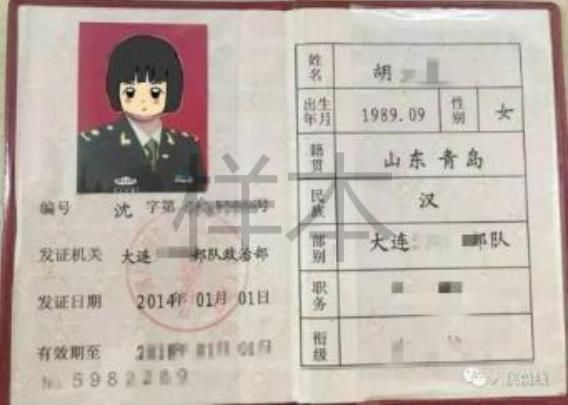 编号 沈 字第 号
发证机关 大连 部队政治部
发证日期 2014年 01月 01日
有效期至 01月 01日
No 5982289
姓名 胡
出生年月 1989.09 性别 女
籍贯 山东 青岛
民族 汉
部别 大连 部队
职务
衔级
样本